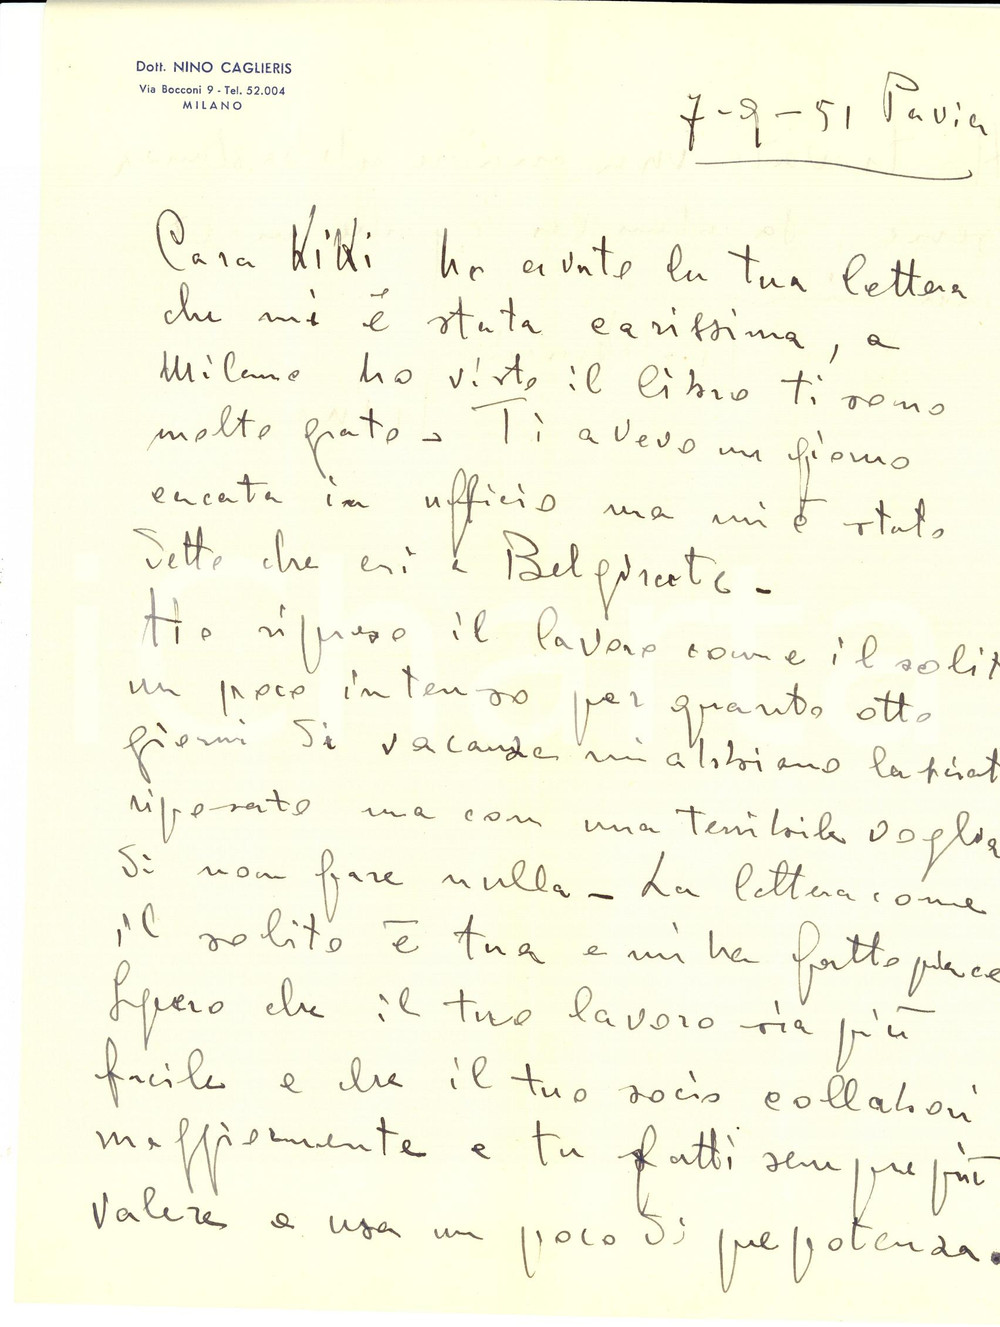 Dott. NINO CAGLIERIS
Via Bocconi 9 - Tel. 52.004
MILANO
7-9-51 Pavia
Cara KiKi ho avuto la tua lettera
che mi è stata carissima, a
Milano ho visto il libro ti sono
molto grato - Ti avevo un giorno
cercata in ufficio ma mi è stato
detto che eri a Belgirate -
Ho ripreso il lavoro come il solit
un poco intenso per quanto otto
giorni di vacanza mi abbiano
riposato ma con una terribile voglia
di non fare nulla - La lettera come
il solito è tua e mi ha fatto piace
Spero che il tuo lavoro sia più
facile e che il tuo socio collabori
maggiormente e tu fatti sempre più
valere e usa un poco di prepotenza.